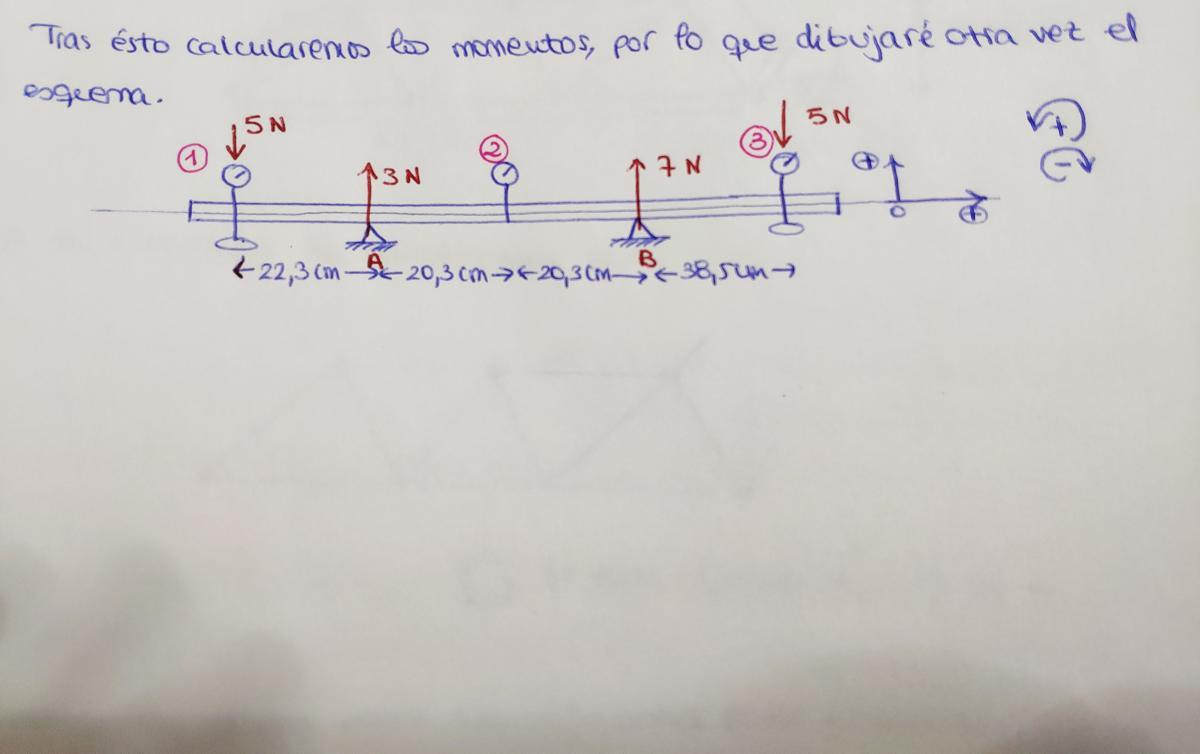 Tras ésto calcularemos los momentos, por lo que dibujaré otra vez el
esquema.
5 N
5 N
1
2
3
3 N
7 N
+
+
-
0
+
A
B
22,3 cm
20,3 cm
20,3 cm
38,5 cm